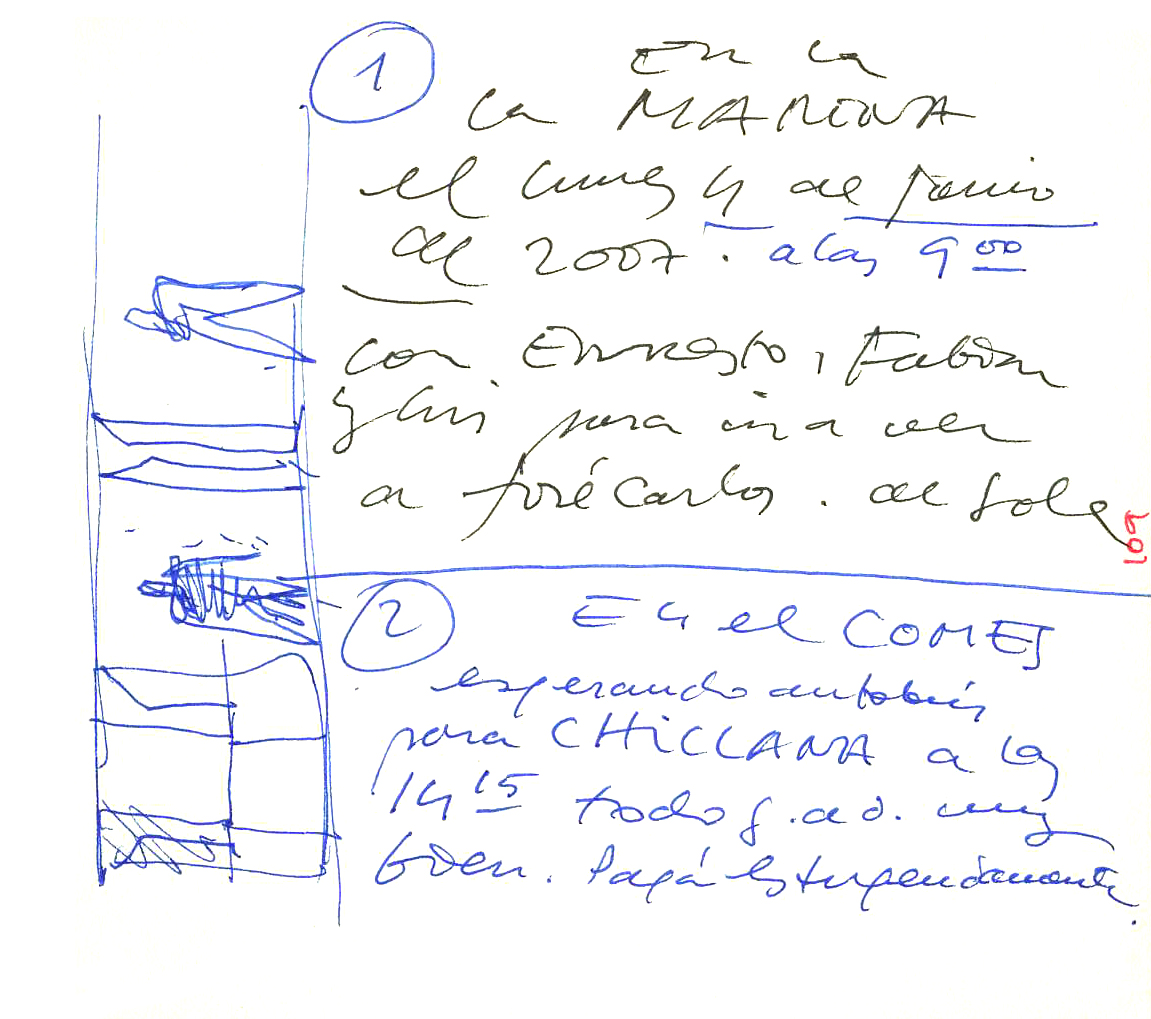 1
En la
la MARINA
el lunes 4 de junio
de 2007. a las 9 00
con Ernesto, Fabian
y Luis para ir a ver
a José Carlos. de Sola
109
2
En el COMES
esperando autobús
para CHICLANA a las
14 15 todo g. a d. muy
bien. Papá estupendamente.